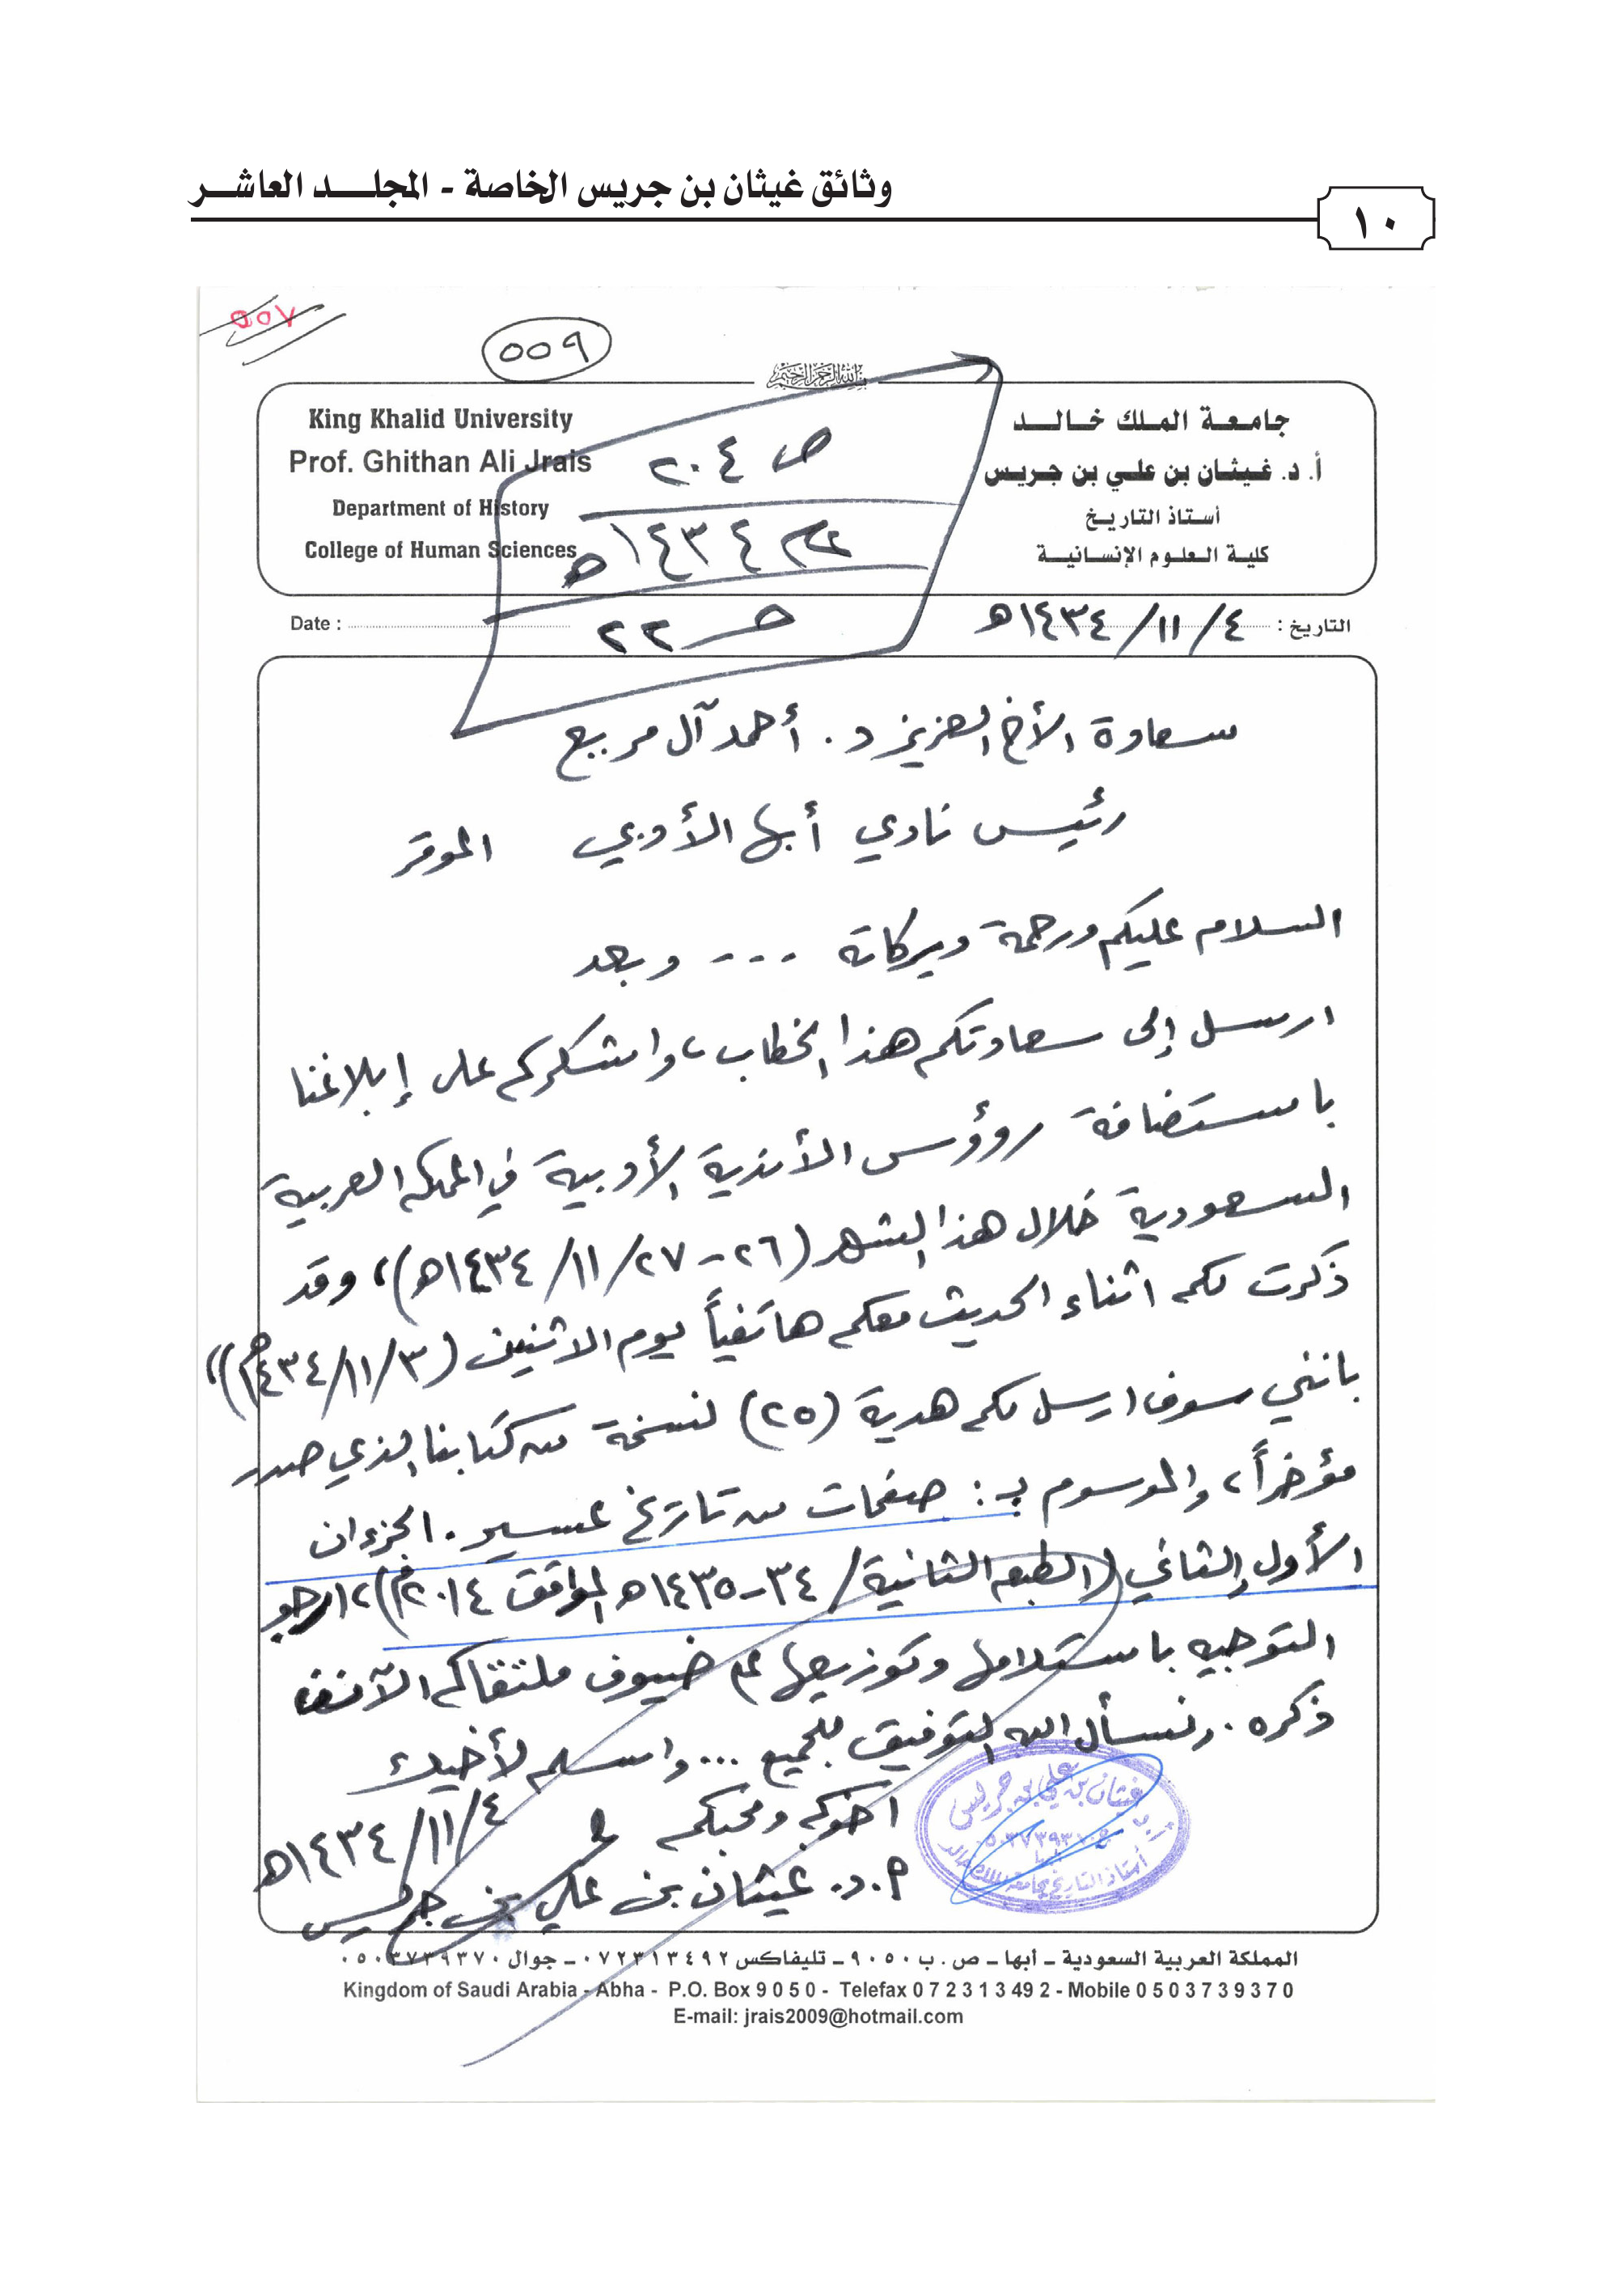 وثائق غيثان بن جريس الخاصة - المجلد العاشر
١٠
٥٥٧
٥٥٩
بسم الله الرحمن الرحيم
جامعة الملك خالد
أ. د. غيثان بن علي بن جريس
أستاذ التاريخ
كلية العلوم الإنسانية
King Khalid University
Prof. Ghithan Ali Jrais
Department of History
College of Human Sciences
ص ٢٠٤
١٤٣٤هـ
حـ ٢٢
التاريخ : ٤ / ١١ / ١٤٣٤هـ
Date :
سعادة الأخ العزيز د. أحمد آل مريع
رئيس نادي أبها الأدبي الموقر
السلام عليكم ورحمة وبركاته --- وبعد
ارسل إلى سعادتكم هذا الخطاب، واشكركم على إبلاغنا
باستضافة رؤوس الأندية الأدبية في المملكة العربية
السعودية خلال هذا الشهر (٢٦-٢٧/ ١١/ ١٤٣٤هـ)، وقد
ذكرت لكم اثناء الحديث معكم هاتفياً يوم الاثنين (٣/ ١١/ ١٤٣٤هـ)،
بانني سوف ارسل لكم هدية (٢٥) نسخة من كتابنا الذي صدر
مؤخراً، والموسوم بـ: صفحات من تاريخ عسير. الجزءان
الأول والثاني (الطبعة الثانية/ ٣٤-١٤٣٥هـ الموافق ٢٠١٤م)، ارجو
التوجيه باستلامها وتوزيعها على ضيوف ملتقاكم الآنف
ذكره. ونسأل الله التوفيق للجميع ... واسلم لأخيك
اخوكم ومحبكم
٤/ ١١/ ١٤٣٤هـ
أ.د. غيثان بن علي بن جريس
غيثان بن علي بن جريس
أستاذ التاريخ بجامعة الملك خالد
المملكة العربية السعودية - أبها - ص . ب ٩٠٥٠ - تليفاكس ٠٧٢٣١٣٤٩٢ - جوال ٠٥٠٣٧٣٩٣٧٠
Kingdom of Saudi Arabia - Abha - P.O. Box 9 0 5 0 - Telefax 0 7 2 3 1 3 49 2 - Mobile 0 5 0 3 7 3 9 3 7 0
E-mail: jrais2009@hotmail.com